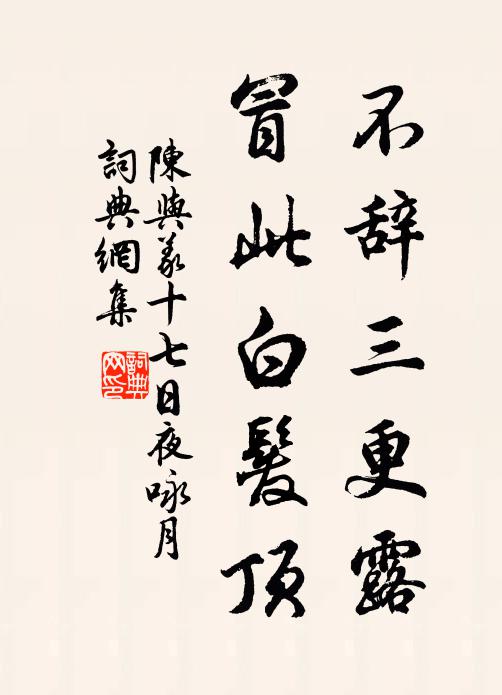 不辞三更露
冒此白髮頂
陳與義十七日夜咏月
詞典網集
詞典網印